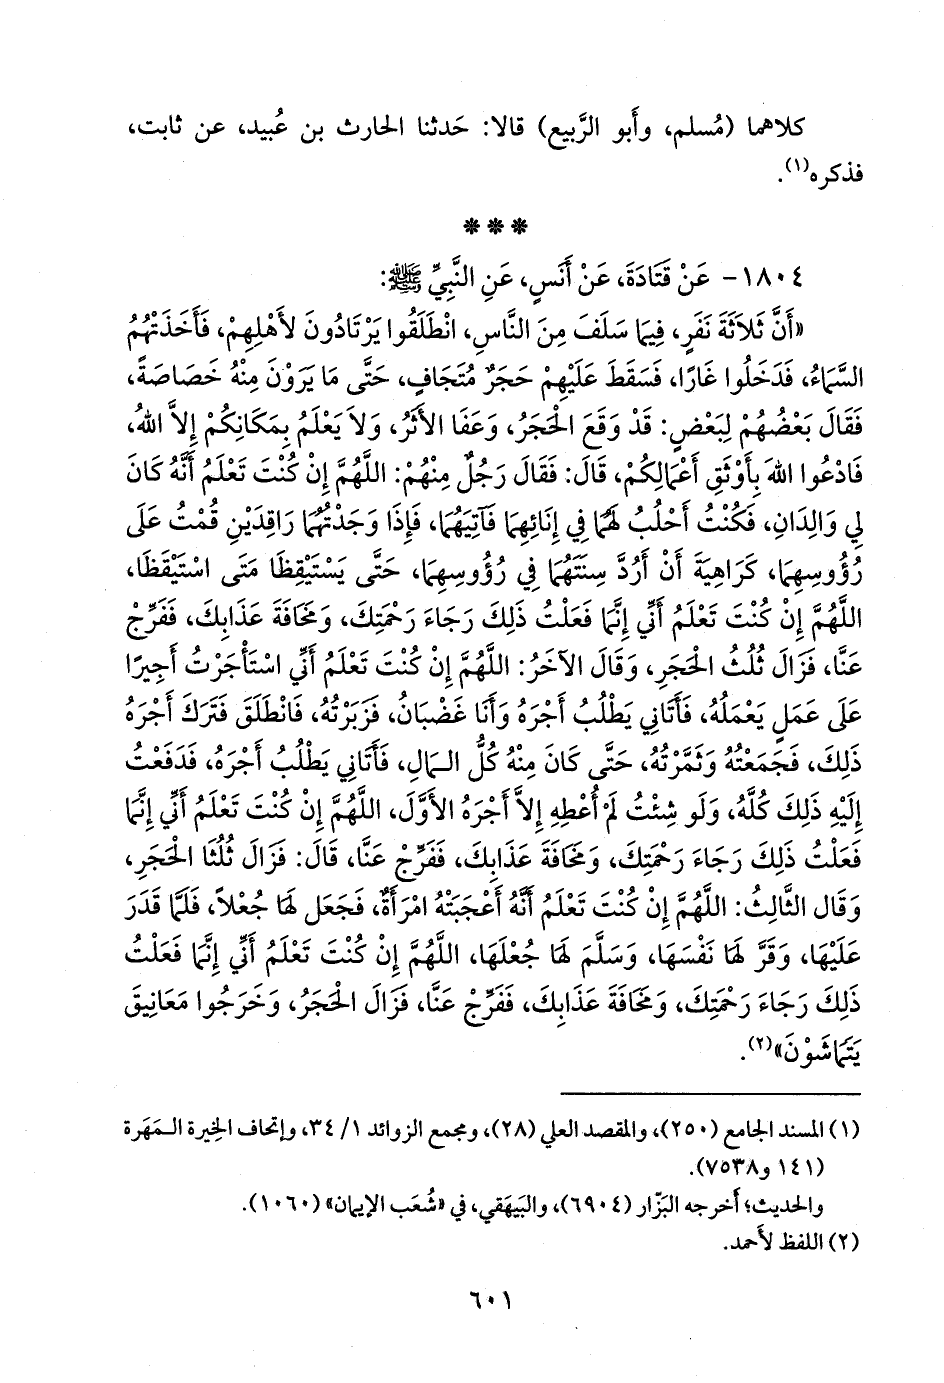 كلاهما (مُسلم، وأَبو الرَّبيع) قالا: حَدثنا الحارث بن عُبيد، عن ثابت،
فذكره(١).
* * *
١٨٠٤- عَنْ قَتَادَةَ، عَنْ أَنَسٍ، عَنِ النَّبِيِّ ﷺ:
«أَنَّ ثَلَاثَةَ نَفَرٍ، فِيمَا سَلَفَ مِنَ النَّاسِ، انْطَلَقُوا يَرْتَادُونَ لأَهْلِهِمْ، فَأَخَذَتْهُمُ
السَّمَاءُ، فَدَخَلُوا غَارًا، فَسَقَطَ عَلَيْهِمْ حَجَرٌ مُتَجَافٍ، حَتَّى مَا يَرَوْنَ مِنْهُ خَصَاصَةً،
فَقَالَ بَعْضُهُمْ لِبَعْضٍ: قَدْ وَقَعَ الْحَجَرُ، وَعَفَا الأَثَرُ، وَلاَ يَعْلَمُ بِمَكَانِكُمْ إِلاَّ اللهُ،
فَادْعُوا اللهَ بِأَوْثَقِ أَعْمَالِكُمْ، قَالَ: فَقَالَ رَجُلٌ مِنْهُمْ: اللَّهُمَّ إِنْ كُنْتَ تَعْلَمُ أَنَّهُ كَانَ
لِي وَالِدَانِ، فَكُنْتُ أَحْلُبُ لَهُمَا فِي إِنَائِهِمَا فَآتِيَهُمَا، فَإِذَا وَجَدْتُهُمَا رَاقِدَيْنِ قُمْتُ عَلَى
رُؤُوسِهِمَا، كَرَاهِيَةَ أَنْ أَرُدَّ سِنَتَهُمَا فِي رُؤُوسِهِمَا، حَتَّى يَسْتَيْقِظَا مَتَى اسْتَيْقَظَا،
اللَّهُمَّ إِنْ كُنْتَ تَعْلَمُ أَنِّي إِنَّمَا فَعَلْتُ ذَلِكَ رَجَاءَ رَحْمَتِكَ، وَمَخَافَةَ عَذَابِكَ، فَفَرِّجْ
عَنَّا، فَزَالَ ثُلُثُ الْحَجَرِ، وَقَالَ الآخَرُ: اللَّهُمَّ إِنْ كُنْتَ تَعْلَمُ أَنِّي اسْتَأْجَرْتُ أَجِيرًا
عَلَى عَمَلٍ يَعْمَلُهُ، فَأَتَانِي يَطْلُبُ أَجْرَهُ وَأَنَا غَضْبَانُ، فَزَبَرْتُهُ، فَانْطَلَقَ فَتَرَكَ أَجْرَهُ
ذَلِكَ، فَجَمَعْتُهُ وَثَمَّرْتُهُ، حَتَّى كَانَ مِنْهُ كُلُّ الـمَالِ، فَأَتَانِي يَطْلُبُ أَجْرَهُ، فَدَفَعْتُ
إِلَيْهِ ذَلِكَ كُلَّهُ، وَلَو شِئْتُ لَمْ أُعْطِهِ إِلاَّ أَجْرَهُ الأَوَّلَ، اللَّهُمَّ إِنْ كُنْتَ تَعْلَمُ أَنِّي إِنَّمَا
فَعَلْتُ ذَلِكَ رَجَاءَ رَحْمَتِكَ، وَمَخَافَةَ عَذَابِكَ، فَفَرِّجْ عَنَّا، قَالَ: فَزَالَ ثُلُثَا الْحَجَرِ،
وَقَالَ الثَّالِثُ: اللَّهُمَّ إِنْ كُنْتَ تَعْلَمُ أَنَّهُ أَعْجَبَتْهُ امْرَأَةٌ، فَجَعَلَ لَهَا جُعْلاً، فَلَمَّا قَدَرَ
عَلَيْهَا، وَقَرَّ لَهَا نَفْسَهَا، وَسَلَّمَ لَهَا جُعْلَهَا، اللَّهُمَّ إِنْ كُنْتَ تَعْلَمُ أَنِّي إِنَّمَا فَعَلْتُ
ذَلِكَ رَجَاءَ رَحْمَتِكَ، وَمَخَافَةَ عَذَابِكَ، فَفَرِّجْ عَنَّا، فَزَالَ الْحَجَرُ، وَخَرَجُوا مَعَانِيقَ
يَتَمَاشَوْنَ»(٢).
(١) المسند الجامع (٢٥٠)، والمقصد العلي (٢٨)، ومجمع الزوائد ١/ ٣٤، وإتحاف الخِيرة الـمَهَرة
(١٤١ و٧٥٣٨).
والحديث؛ أخرجه البَزَّار (٦٩٠٤)، والبَيهَقي، في «شُعَب الإيمان» (١٠٦٠).
(٢) اللفظ لأَحمد.
٦٠١